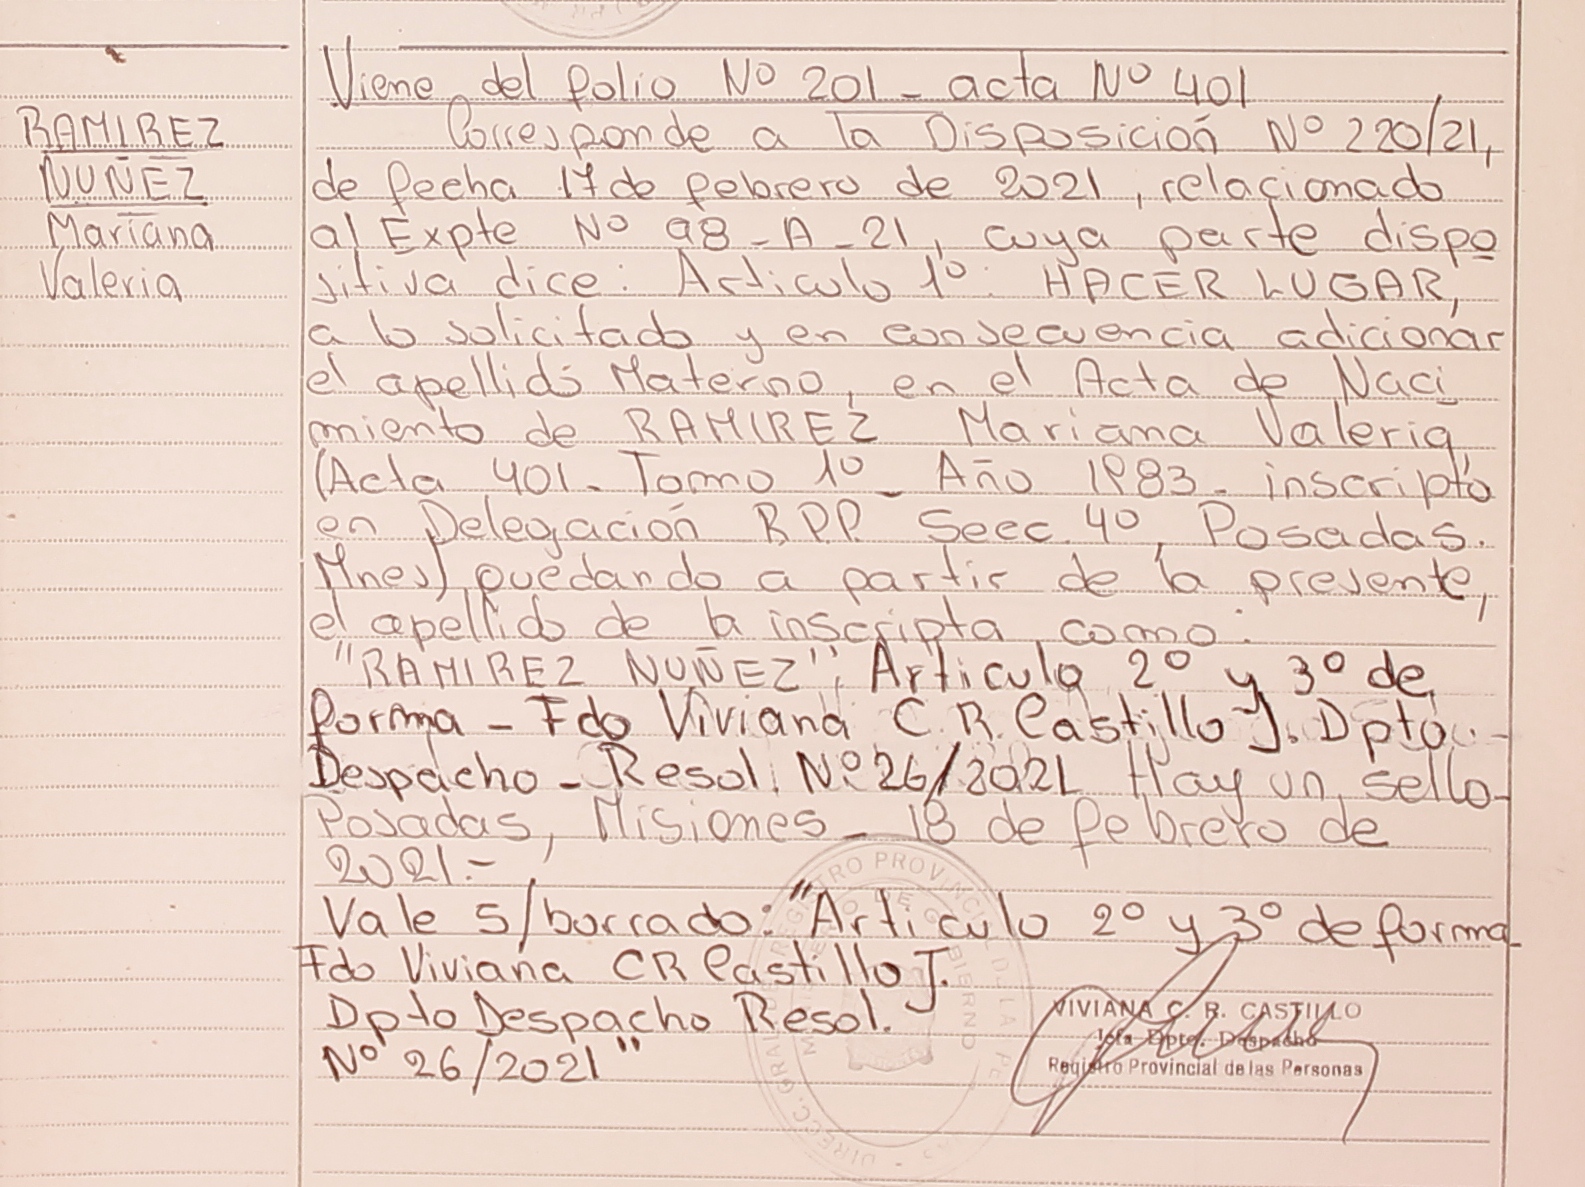 RAMIREZ
NUÑEZ
Mariana
Valeria
Viene del folio Nº 201 - acta Nº 401
Corresponde a la Disposición Nº 220/21,
de fecha 17 de febrero de 2021, relacionado
al Expte Nº 98-A-21, cuya parte dispo
sitiva dice: Articulo 1º: HACER LUGAR,
a lo solicitado y en consecuencia adicionar
el apellido Materno, en el Acta de Naci
miento de RAMIREZ Mariana Valeria
(Acta 401 - Tomo 1º - Año 1983 - inscripta
en Delegación R.P.P. Secc. 4º, Posadas.
Mnes) quedando a partir de la presente,
el apellido de la inscripta como:
"RAMIREZ NUÑEZ"; Articulo 2º y 3º de
forma - Fdo Viviana C.R. Castillo J. Dpto
Despacho - Resol. Nº 26/2021 Hay un sello-
Posadas, Misiones - 18 de febrero de
2021.-
Vale s/borrado: "Articulo 2º y 3º de forma
Fdo Viviana CR Castillo J.
Dpto Despacho Resol.
Nº 26/2021"
VIVIANA C. R. CASTILLO
Jefa Dpto. Despacho
Registro Provincial de las Personas